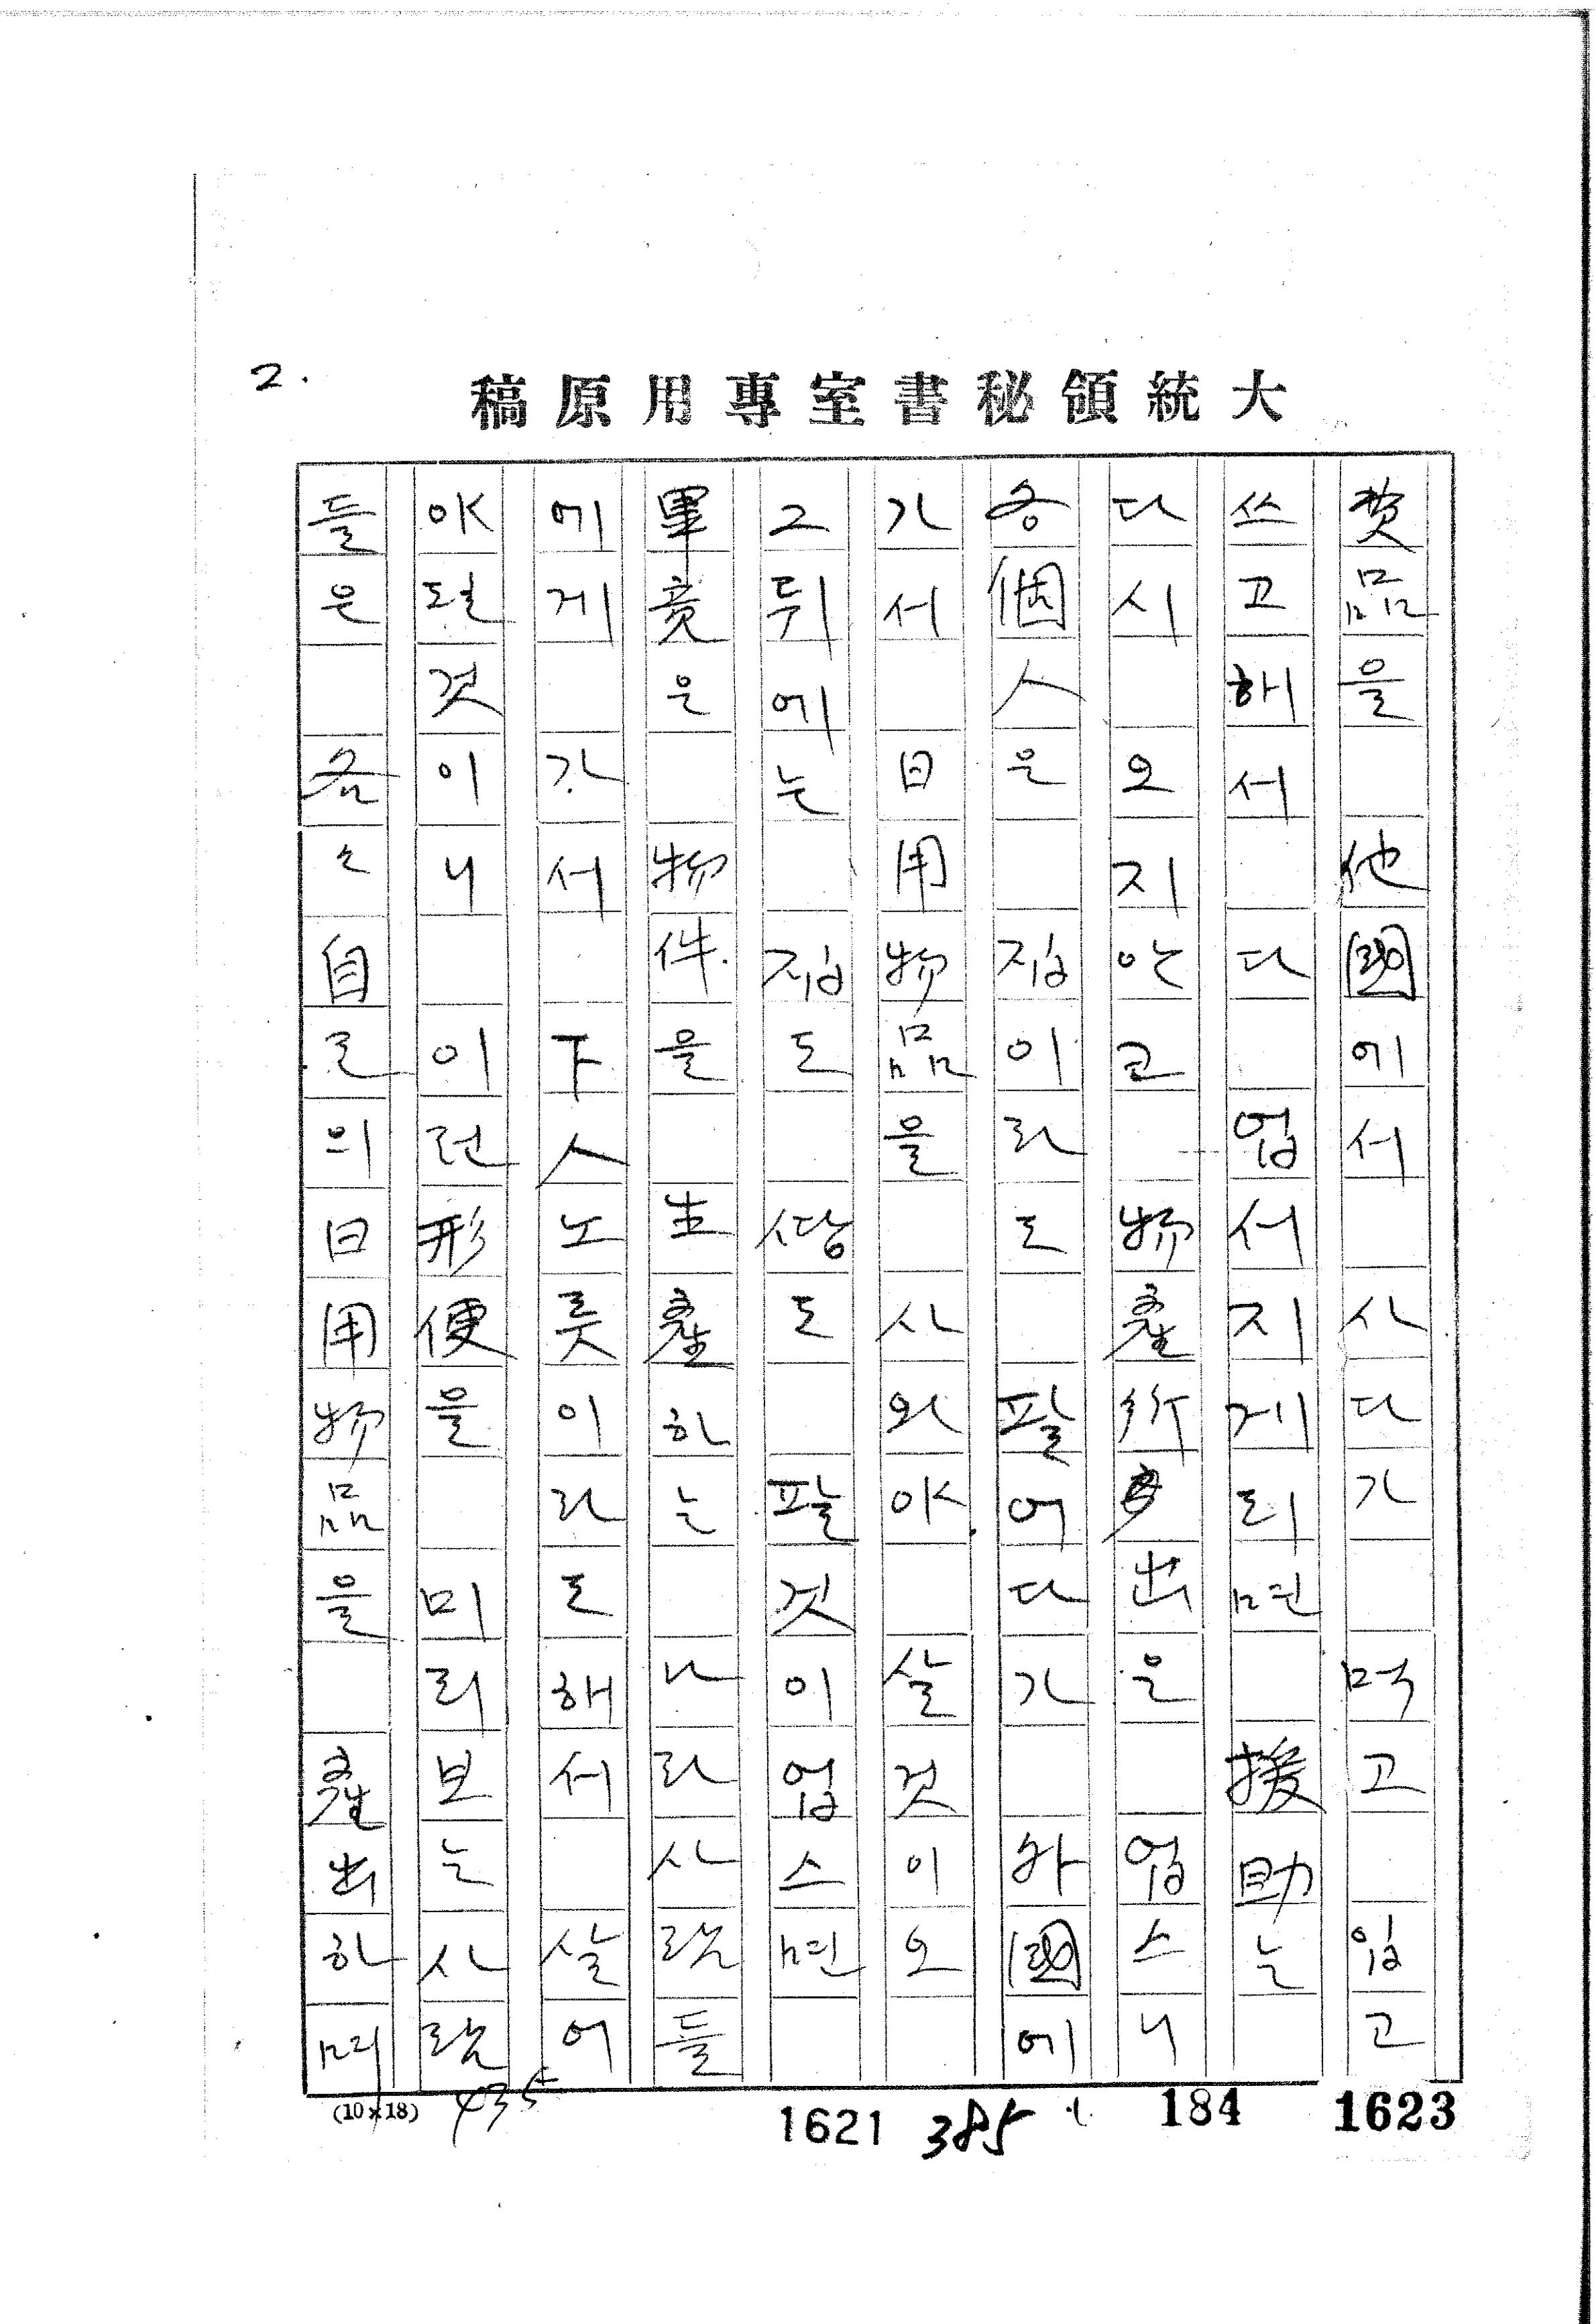 2.
大統領秘書室專用原稿
費品을 他國에서 사다가 먹고 입고
쓰고해서 다 업서지게되면 援助는
다시 오지안코 物產 出은 업스니
各個人은 집이라도 팔어다가 外國에
가서 日用物品을 사와야 살것이오
그뒤에는 집도 땅도 팔것이업스면
畢竟은 物件을 生產하는 나라사람들
에게 가서 下人노릇이라도해서 살어
야될것이니 이런形便을 미리보는사람
들은 各々自己의日用物品을 產出하며
(10×18) 435 1621 385 184 1623